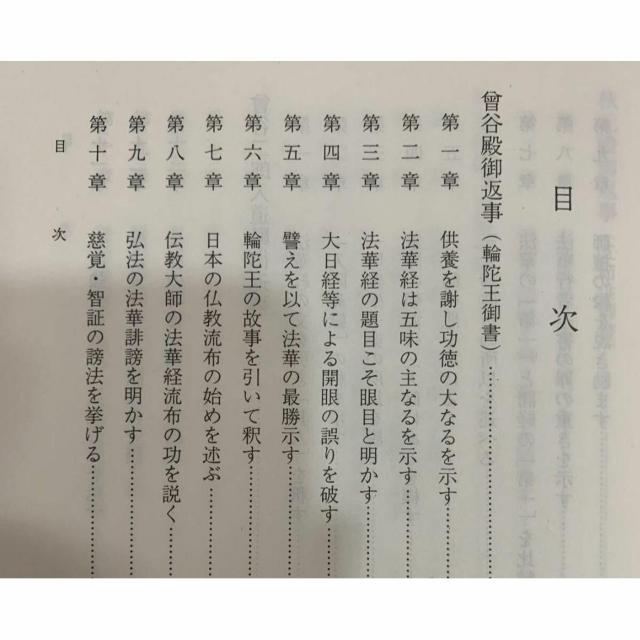 目　次
曾谷殿御返事（輪陀王御書）…………
第一章　供養を謝し功徳の大なるを示す…………
第二章　法華経は五味の主なるを示す…………
第三章　法華経の題目こそ眼目と明かす…………
第四章　大日経等による開眼の誤りを破す…………
第五章　譬えを以て法華の最勝示す…………
第六章　輪陀王の故事を引いて釈す…………
第七章　日本の仏教流布の始めを述ぶ…………
第八章　伝教大師の法華経流布の功を説く…………
第九章　弘法の法華誹謗を明かす…………
第十章　慈覚・智証の謗法を挙げる…………
目　次